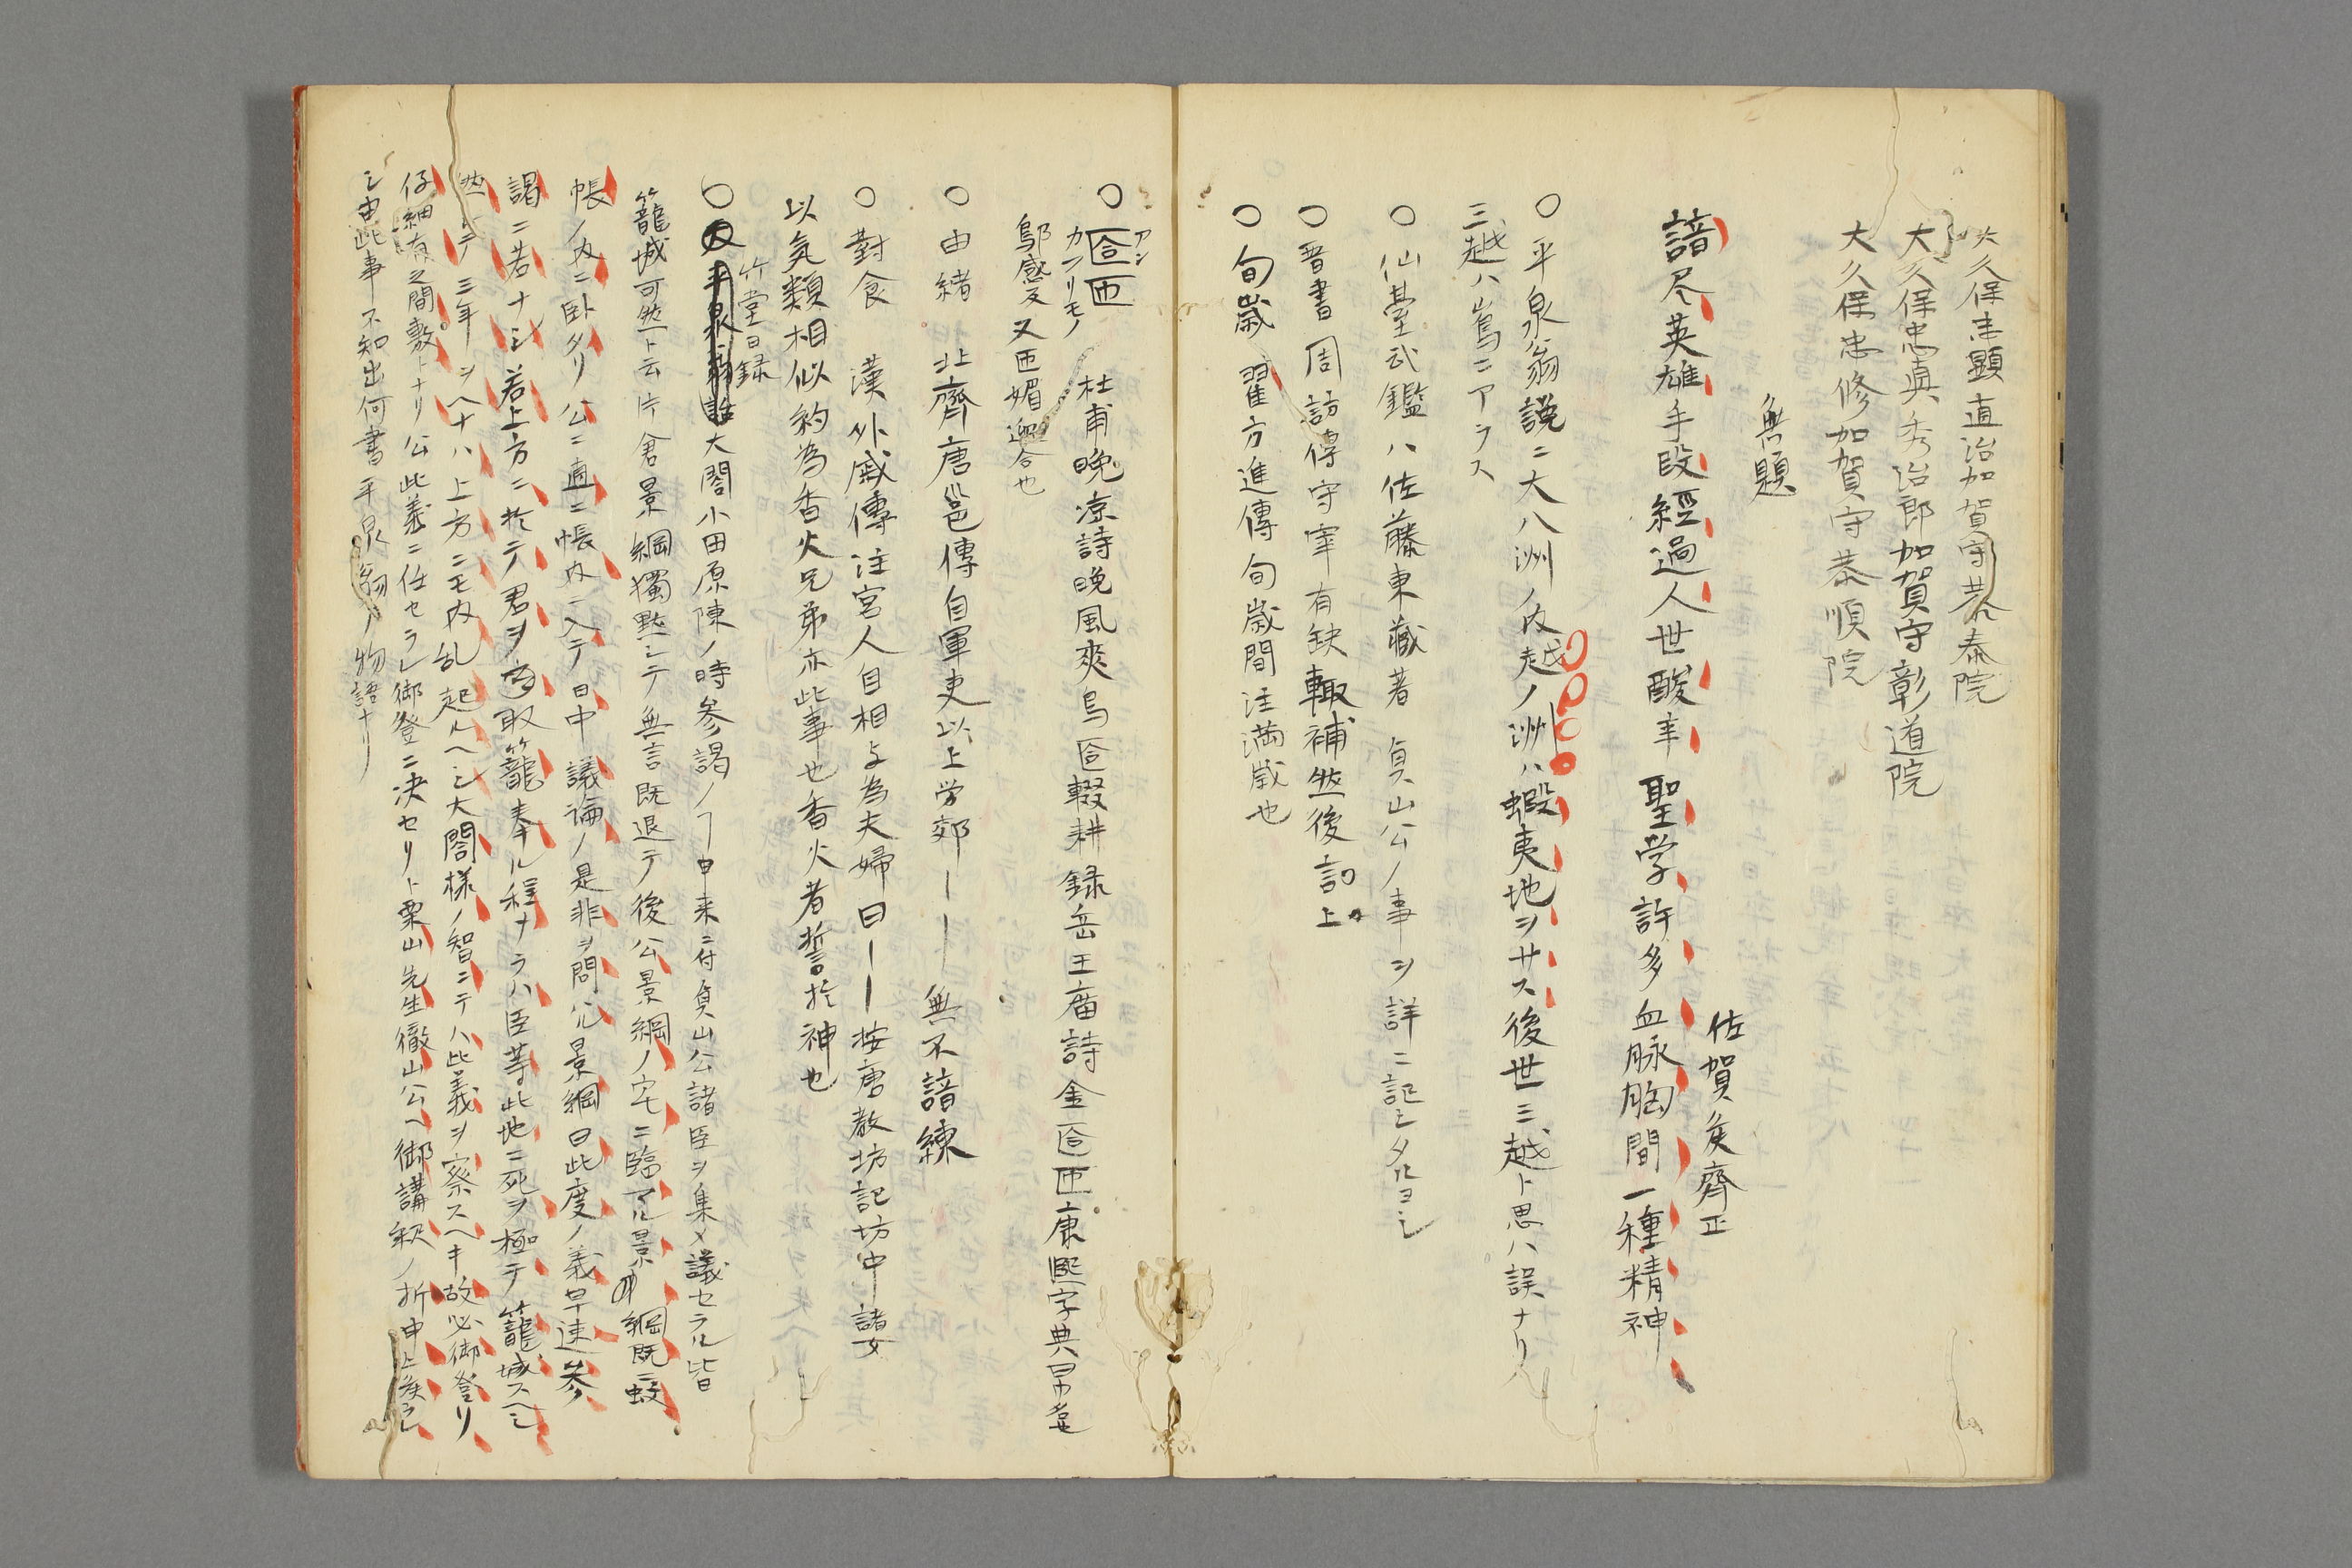 大久保忠顕直治加賀守恭泰院
大久保忠真秀治郎加賀守彰道院
大久保忠修加賀守恭順院
無題
佐賀矦齊正
諳尽英雄手段經過人世酸辛聖学許多血脉胸間一種精神
○平泉翁説ニ大八洲ノ内越ノ洲ハ蝦夷地ヲサス後世三越ト思ハ誤ナリ
三越ハ嶌ニアラス
○仙臺武鑑ハ佐藤東蔵著貞山公ノ事ヲ詳ニ記シタルヨシ
○晋書周訪傳守宰有缺輙補然後言上
○旬歳翟方進傳旬歳間注満歳也
○匼匝杜甫晩凉詩晩風爽烏匼輟耕録岳王廟詩金匼匝康熙字典帛名
アン
カフリモノ
鄔感反又匝媚迎合也
○由緒北齊唐邕傳自軍吏以上労郊ーー無不諳練
○對食漢外戚傳注宮人自相与為夫婦曰ーー按唐教坊記坊中諸女
以気類相似約為香火兄弟亦此事也香火者誓於神也
竹堂日録
○大閤小田原陳ノ時参謁ノ丁申来ニ付貞山公諸臣ヲ集メ議セラル皆曰
籠城可然ト云片倉景綱獨黙シテ無言既退テ後公景綱ノ宅ニ臨了ル景綱既ニ蚊
帳ノ内ニ臥タリ公ニ直ニ帳内ニ入テ日中議論ノ是非ヲ問ル景綱曰此度ノ義早速参
謁ニ若ナシ若上方ニ於テ君ヲ取籠奉ル程ナラハ臣等此地ニ死ヲ極テ籠城スヘシ
然トテ三年ヲヘナハ上方ニモ内乱起ルヘシ大閤様ノ智ニテハ此義ヲ察スヘキ故必御登リ
仔細有之間敷トナリ公此義ニ任セラレ御登ニ决セリト栗山先生徹山公ヘ御講釈ノ折申上矦ラレ
シ由此事不知出何書平泉翁ノ物語ナリ